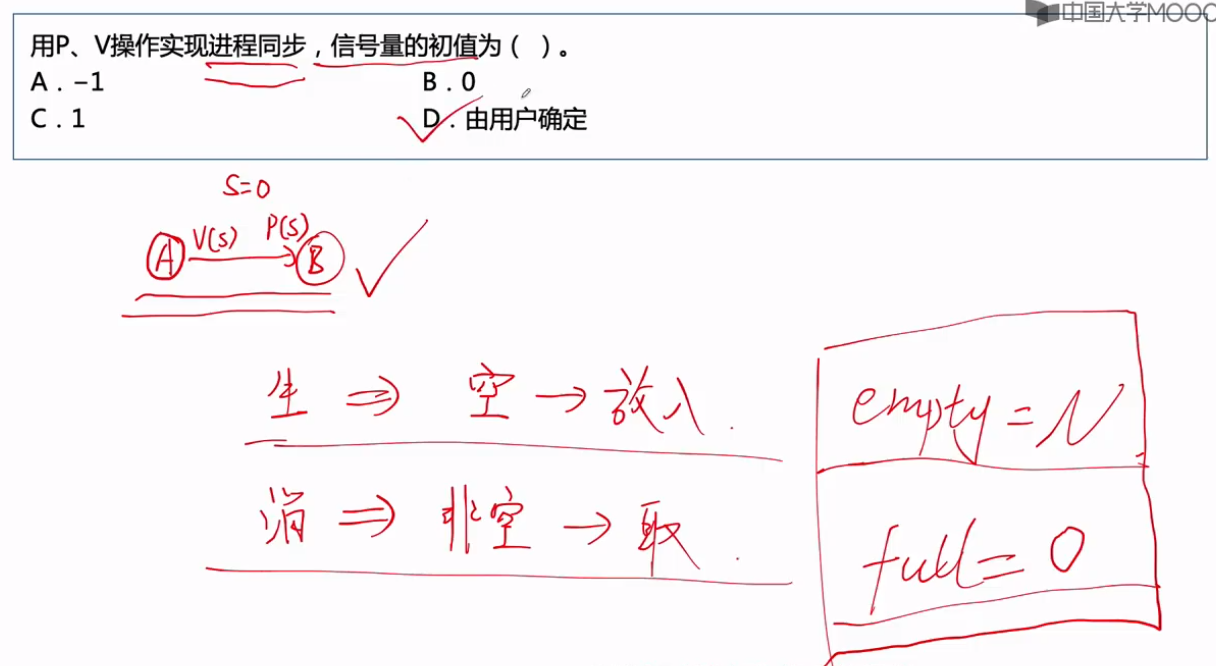 中国大学MOOC
用P、V操作实现进程同步，信号量的初值为（ ）。
A．-1 B．0
C．1 D．由用户确定
S=0
A V(S) P(S) B
生 ⇒ 空 → 放入.
empty=N
消 ⇒ 非空 → 取.
full=0